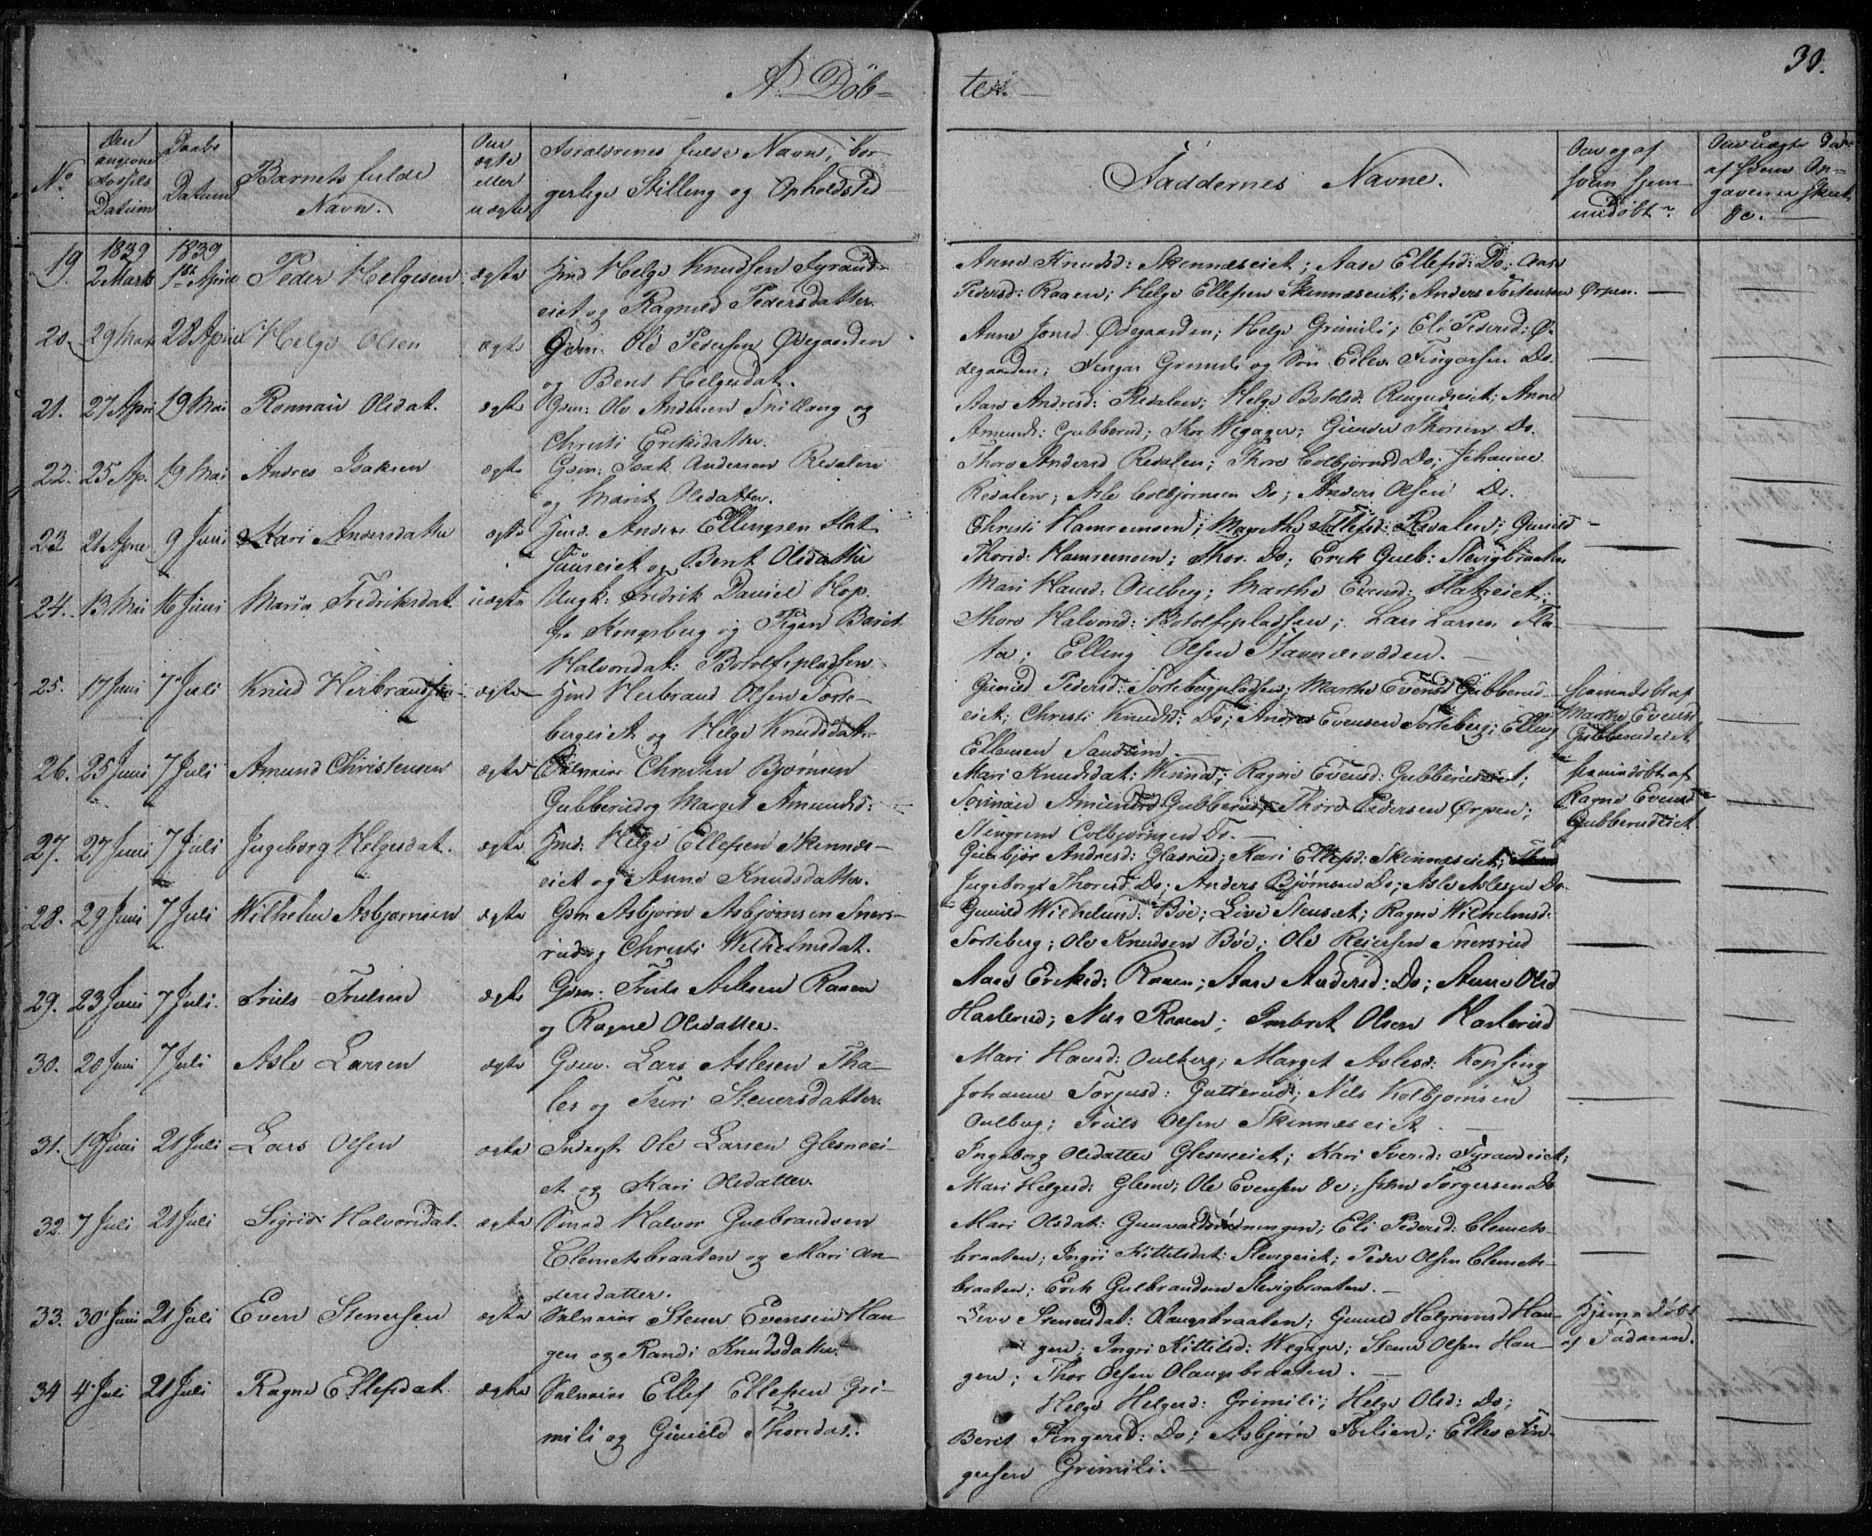 30.
A. Döb-
te.
No
Den angivne Fødsels Datum
Daabs Datum
Barnets fulde Navn.
Om ægte eller uægte
Forældrenes fulde Navn, borgerlige Stilling og Opholdsted
Faddernes Navne.
Om og af hvem hjemmedøbt
19. 1839 2 Marts 1839 1ste April Peder Helgesen ægte Hmd Helge Knudsen Tyrand-
eiet og Ragnild Pedersdatter
Anne Knudsd: Skinnæseiet; Aase Ellefsd: Do; Aase
Pedersd: Raaen; Helge Ellefsen Skinnæseiet; Anders Tostensen Ørpen.
20. 29 Mart 28 April Helge Olsen ægte Gdm. Ole Pedersen Ødegaarden
og Berit Helgesdat.
Anne Jonsd Ødegaarden; Helge Grimili; Eli Pedersd: Ø-
degaarden; Fingar Grimili og Søn Eilev Fingarsen Do.
21. 27 April 19 Mai Rannau Olsdat. ægte Gdm: Ole Andersen Snillong og
Christi Ericksdatter.
Aase Andresd: Redalen; Helge Botolsd. Anne
Amunds: Gubberud; Thor Wegager; Gunder Thorsen Do.
22. 25 Ap. 19 Mai Andres Isaksen ægte Gdm. Isak Andersen Redalen
og Marit Olsdatter.
Thore Andersd Redalen; Thore Colbjørnsd Do; Johanne
Redalen; Asle Colbjørnsen Do; Anders Olsen Do.
23 21 April 9 Juni Kari Andersdatter ægte Hmd. Anders Ellingsen
og Berit Olsdatter
Christi Hamremoen; Magrethe Ellefsd: Redalen; Gunild
Thorsd: Hamremoen; Thor Do; Erik Gulb: Slevigbraaten
24. 13 Mai 16 Juni Maria Fredriksdat uægte Ungk: Fredrik Daniel Hop
fr Kongsberg og Pigen Berit
Halvorsdat: Botolfspladsen
Mari Hansd: Oulberg; Marthe Evensd:
Thore Halvorsd: Botolfspladsen; Lars Larsen Fla-
ta; Elling Olsen
25. 17 Juni 7 Juli Knud Herbrandsen ægte Hmd Herbrand Olsen Sorte-
bergeiet og Helge Knudsdat.
Gunild Pedersd: Sortebergpladsen; Marthe Evensd Gubberud-
eiet; Christi Knudsd: Do; Andres Evensen Sorteberg; Elling
Ellensen Sandum.
hjemmedøbt af
Marthe Evensd
Gubberudeiet
26. 25 Juni 7 Juli Amund Christensen ægte Selveier Christen Bjørnsen
Gubberud og Marget Amundsd:
Mari Knudsdat: Winna; Ragne Evensd: Gubberudeiet;
Amundsd Gubberud; Thord Pedersen Ørpen;
Stengrim Colbjørnsen Do.
hjemmedøbt af
Ragne Evensd
Gubberudeiet
27. 27 Juni 7 Juli Ingeborg Helgesdat. ægte Hmd. Helge Ellefsen Skinnæs-
eiet og Anne Knudsdatter.
Gunbjør Andresd: Glasrud; Kari Ellefsd: Skinnæseiet;
Ingeborg Thorsd Do; Anders Bjørnsen Do; Asle Aslesen Do.
28. 29 Juni 7 Juli Wilhelm Asbjørnsen ægte Gdm Asbjørn Asbjørnsen Sners-
rud og Christi Wilhelmsdat.
Gunild Wilhelmsd. Böe; Live Ragne Wilhelmsd:
Sorteberg; Ole Knudsen Böe; Ole Reiersen Snersrud
29. 23 Juni 7 Juli. Truls Trulsen ægte Gdm: Truls Aslesen Raaen
og Ragne Olsdatter.
Aase Ericksd: Raaen; Aase Andersd: Do; Anne Olsd
Haslerud; Nils Raaen; Imbret Olsen Haslerud
30. 20 Juni 7 Juli Asle Larsen ægte Gdm. Lars Aslesen Tha-
les og Turi Stenersdatter.
Mari Hansd: Oulberg; Marget Aslesd: Kopseng
Johanne Torgusd: Gutterud; Nils Kolbjørnsen
Oulberg; Truls Olsen Skinnæseiet.
31. 19 Juni 21 Juli Lars Olsen ægte Inderst Ole Larsen Glesneei-
et og Kari Olsdatter.
Ingeborg Olsdatter Glesneeiet; Kari Iversd: Tyrandeiet;
Mari Helgesd: Glesne; Ole Evensen Do; John Torgersen Do
32. 7 Juli 21 Juli Sigrid Halvorsdat. ægte Halvor Gulbrandsen
Clemetsbraaten og Mari An-
dersdatter.
Mari Olsdat: Eli Pedersd: Clemets-
braaten; Ingri Kittelsdat: Slevigeiet; Peder Olsen Clemets-
braaten; Erik Gulbrandsen Slevigbraaten.
33. 30 Juni 21 Juli Even Stenersen ægte Selveier Stener Evensen Hau-
gen og Randi Knudsdatter
Live Stenersdat: Olaugsbraaten; Gunild Halgrimsd Hau-
gen; Ingri Kittilsd: Wegager; Stener Olsen Hau-
gen; Thor Olsen Olaugsbraaten.
Hjemmedøbt
af Faderen.
34 4 Juli 21 Juli Ragne Ellefsdat. ægte Selveier Ellef Ellefsen Gri-
mili og Gunild Thorsdat.
Helge Helgesd: Grimili; Helge Olsd: Do;
Berit Fingersd: Do; Asbjørn Ellef Fin-
gersen Grimili.